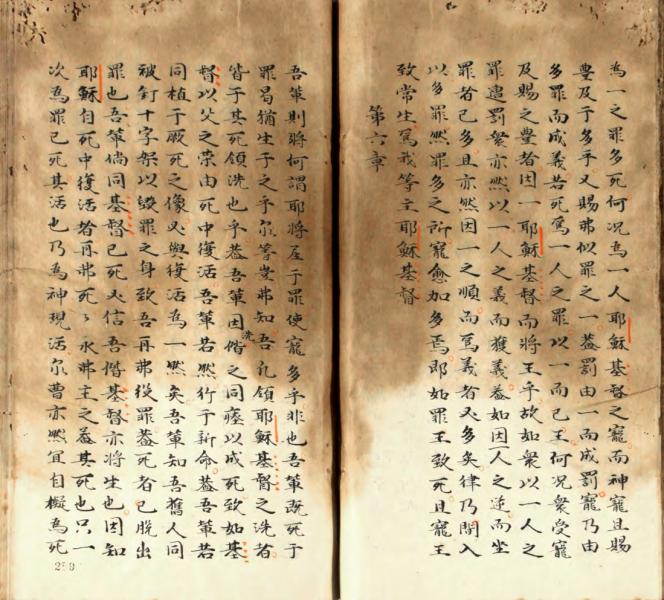 為一之罪多死何况為一人耶穌基督之寵而神寵且賜
豊及于多乎又賜弗似罪之一葢罰由一而成罰寵乃由
多罪而成義若死焉一人之罪以一而已王何况衆受寵
及賜之豊者因一耶穌基督而將王乎故如衆以一人之
罪遣罰衆亦然以一人之義而獲義葢如因人之逆而坐
罪者已多且亦然因一之順而為義者又多矣律乃間入
以多罪然罪多之所寵愈加多焉即如罪王致死且寵王
致常生為我等主耶穌基督
第六章
吾輩則將何謂耶將居于罪使寵多乎非也吾輩既死于
罪曷猶生于之乎尔等豈弗知吾凡領耶穌基督之洗者
皆于其死領洗也乎葢吾輩因洗偕之同瘞以成死致如基
督以父之荣由死中復活吾輩若然行于新命葢吾輩若
同植于厥死之像又與復活為一然矣吾輩知吾舊人同
被釘十字架以毀罪之身致吾再弗役罪葢死者已脱出
罪也吾輩倘同基督已死又信吾偕基督亦將生也因知
耶穌自死中復活者再弗死々永弗主之葢其死也只一
次為罪已死其活也乃為神現活尔曹亦然宜自擬為死
259